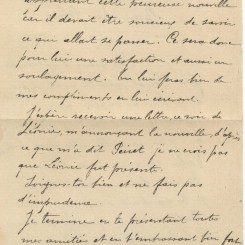 apprenant cette heureuse nouvelle
car il devait être soucieux de savoir
ce que allait se passer. Ce sera donc
pour lui une satisfaction et aussi un
soulagement. Tu lui feras bien de
mes compliments en lui écrivant.
J'espère recevoir une lettre, ce soir de
Léonie, m'annonçant la nouvelle, d'après
ce que m'a dit je ne crois pas
que Léonie fut présente.
Soignes-toi bien et ne fais pas
d'imprudence.
Je termine en te présentant toutes
mes amitiés et en t'embrassant bien fort